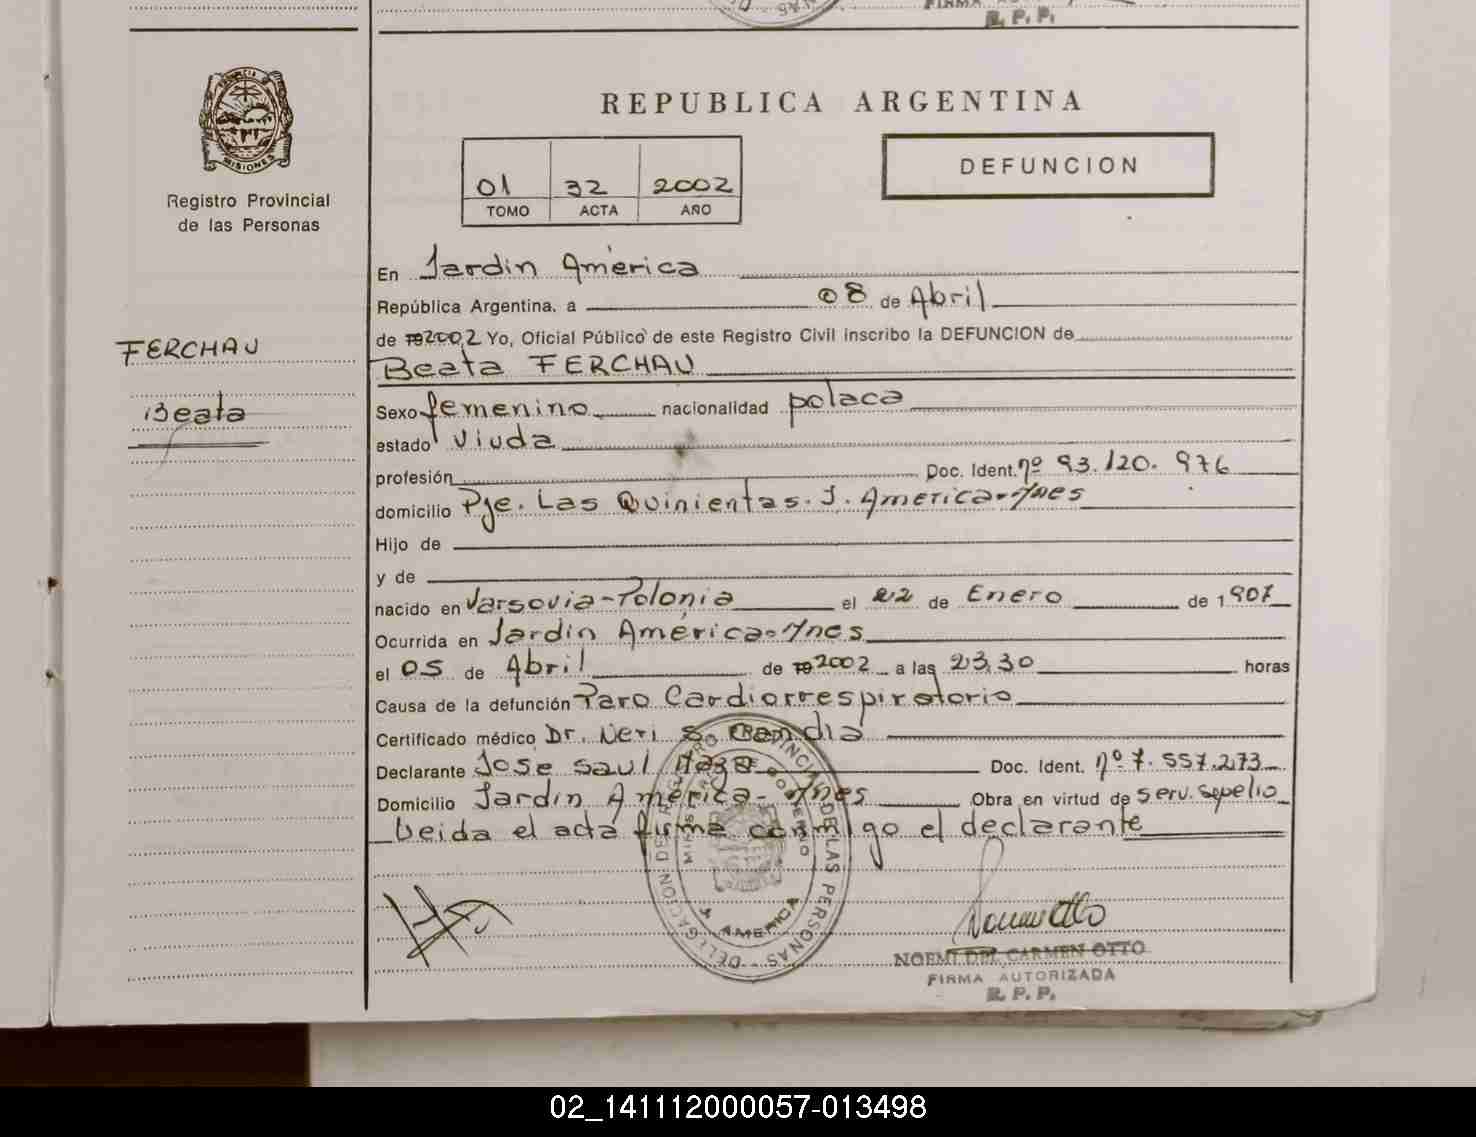 FIRMA
R. P. P.
PROVINCIA DE
MISIONES
Registro Provincial
de las Personas
FERCHAU
Beata
REPUBLICA ARGENTINA
DEFUNCION
01 32 2002
TOMO ACTA AÑO
En Jardin América
República Argentina, a 08 de Abril
de 192002 Yo, Oficial Público de este Registro Civil inscribo la DEFUNCION de
Beata FERCHAU
Sexo femenino nacionalidad polaca
estado viuda
profesión Doc. Ident. nº 93.120.976
domicilio Pje. Las Quinientas. J. America-Mnes
Hijo de
y de
nacido en Varsovia-Polonia el 22 de Enero de 1907
Ocurrida en Jardin América-Mnes
el 05 de Abril de 192002 a las 23,30 horas
Causa de la defunción Paro Cardiorrespiratorio
Certificado médico Dr. Neri S. Candia
Declarante Jose Saul Doc. Ident. nº 7.557.273
Domicilio Jardin América-Mnes Obra en virtud de serv. sepelio
Leida el acta firma conmigo el declarante
REGISTRO PROVINCIAL DE LAS PERSONAS - DELEGACION DE
MINISTERIO DE GOBIERNO
J. AMERICA
NOEMI DEL CARMEN OTTO
FIRMA AUTORIZADA
R. P. P.
02_141112000057-013498